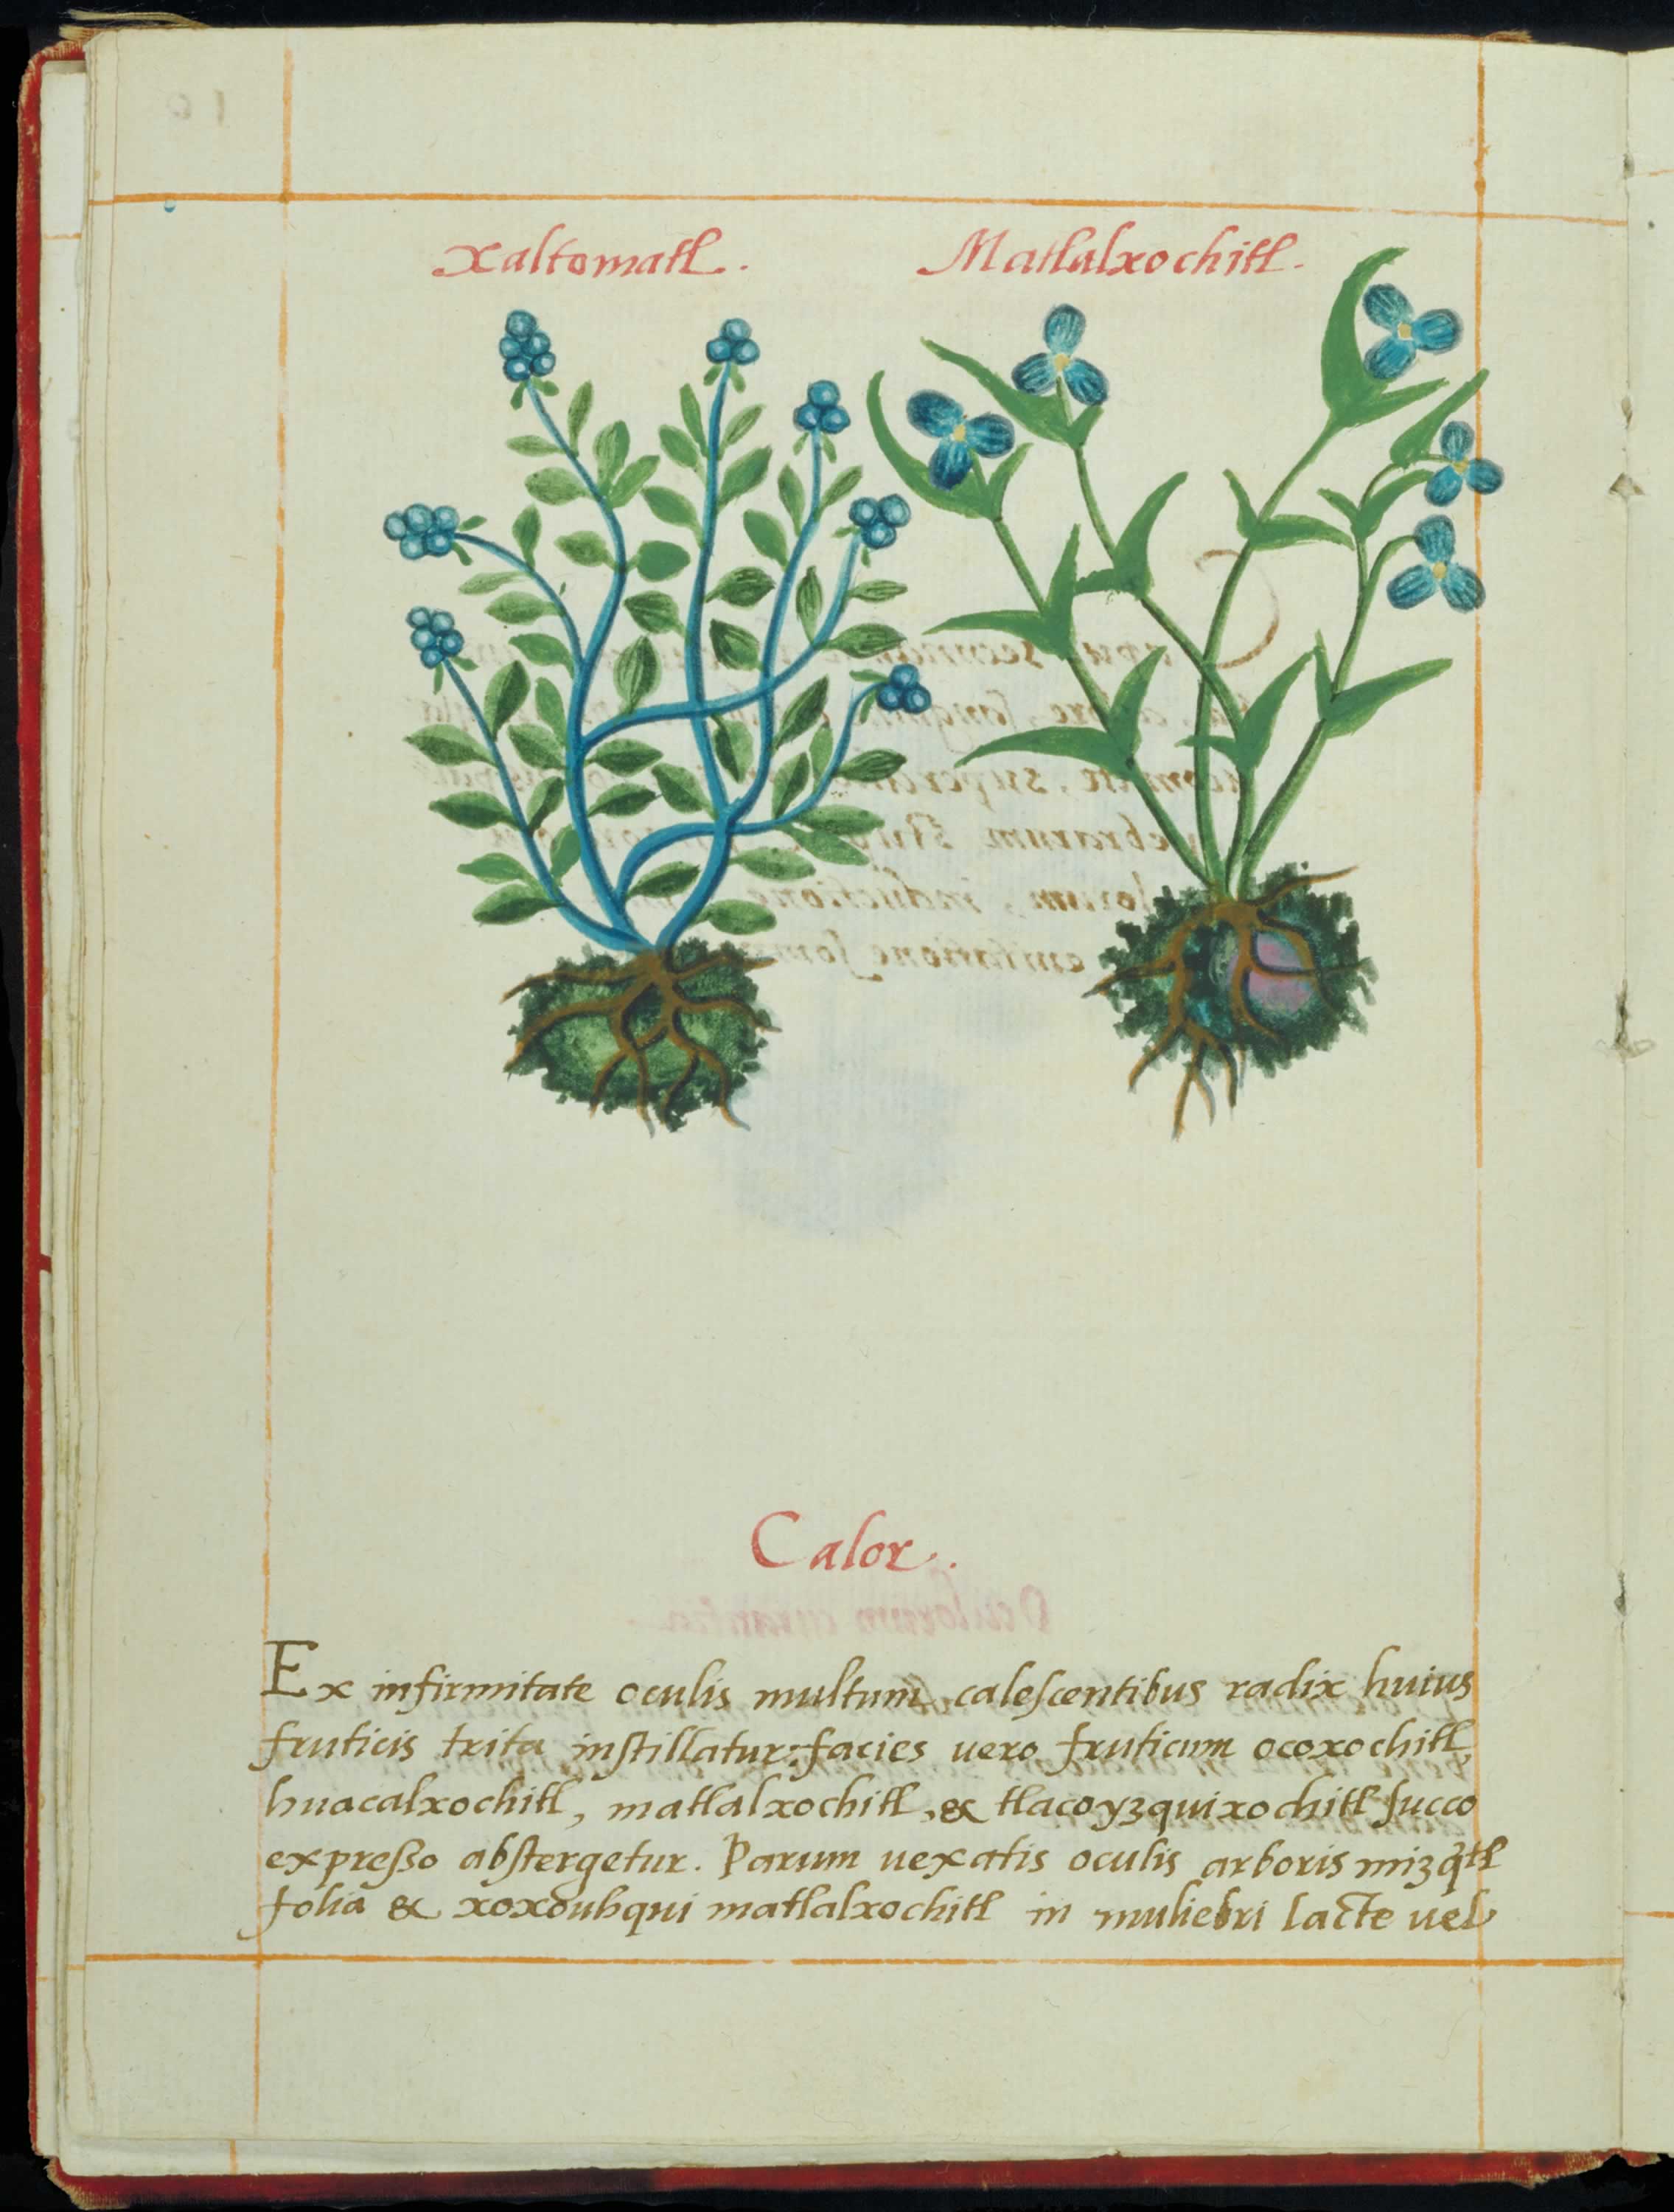 Xaltomatl.
Matlalxochitl.
Calor.
Ex infirmitate oculis multum caleſcentibus radix huius
fruticis trita inſtillatur: facies uero fruticum ocoxochitl,
huacalxochitl, matlalxochitl, & tlacoyzquixochitl ſucco
expreßo abſtergetur. Parum uexatis oculis arboris mizq̃tl
folia & xoxouhqui matlalxochitl in muliebri lacte uel